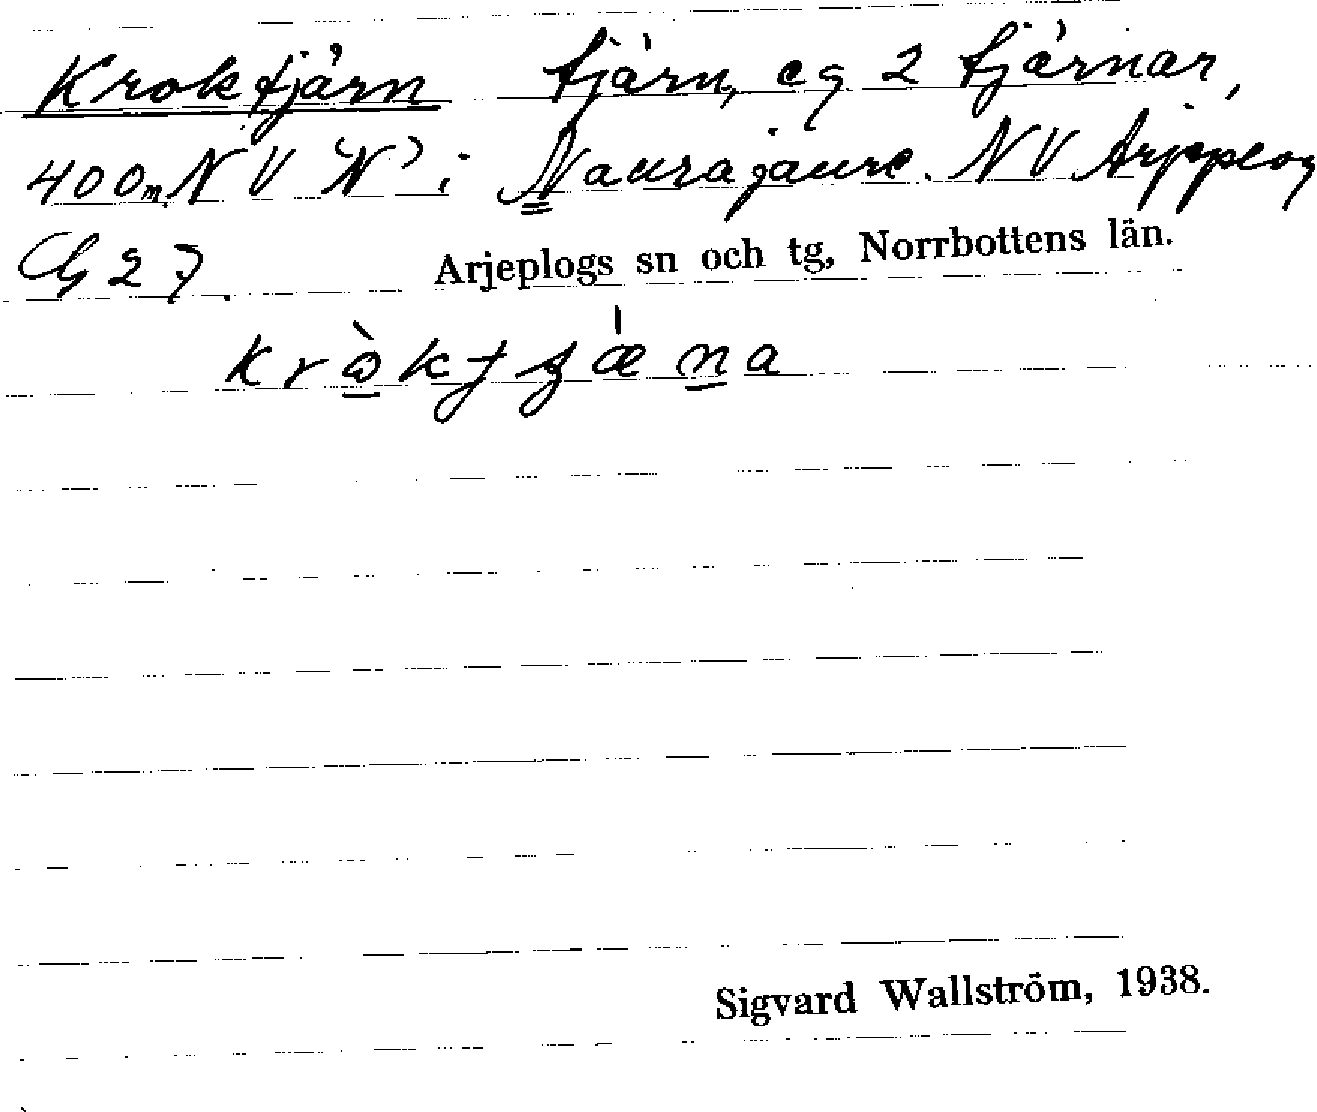 Kroktjärn tjärn, eg 2 tjärnar,
400m NV "N" i Naurajaure. NV Arjeplog
G 27.
Arjeplogs sn och tg, Norrbottens län.
Sigvard Wallström, 1938.